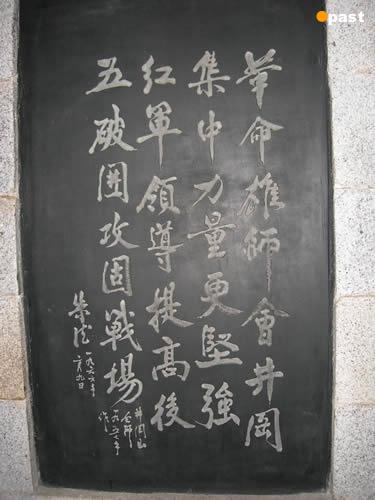 past
革命雄師會井岡
集中力量更堅強
紅軍領導提高後
五破圍攻固戰場
井岡山
会師
一九五七年
作
朱德
一九六六年
月九日